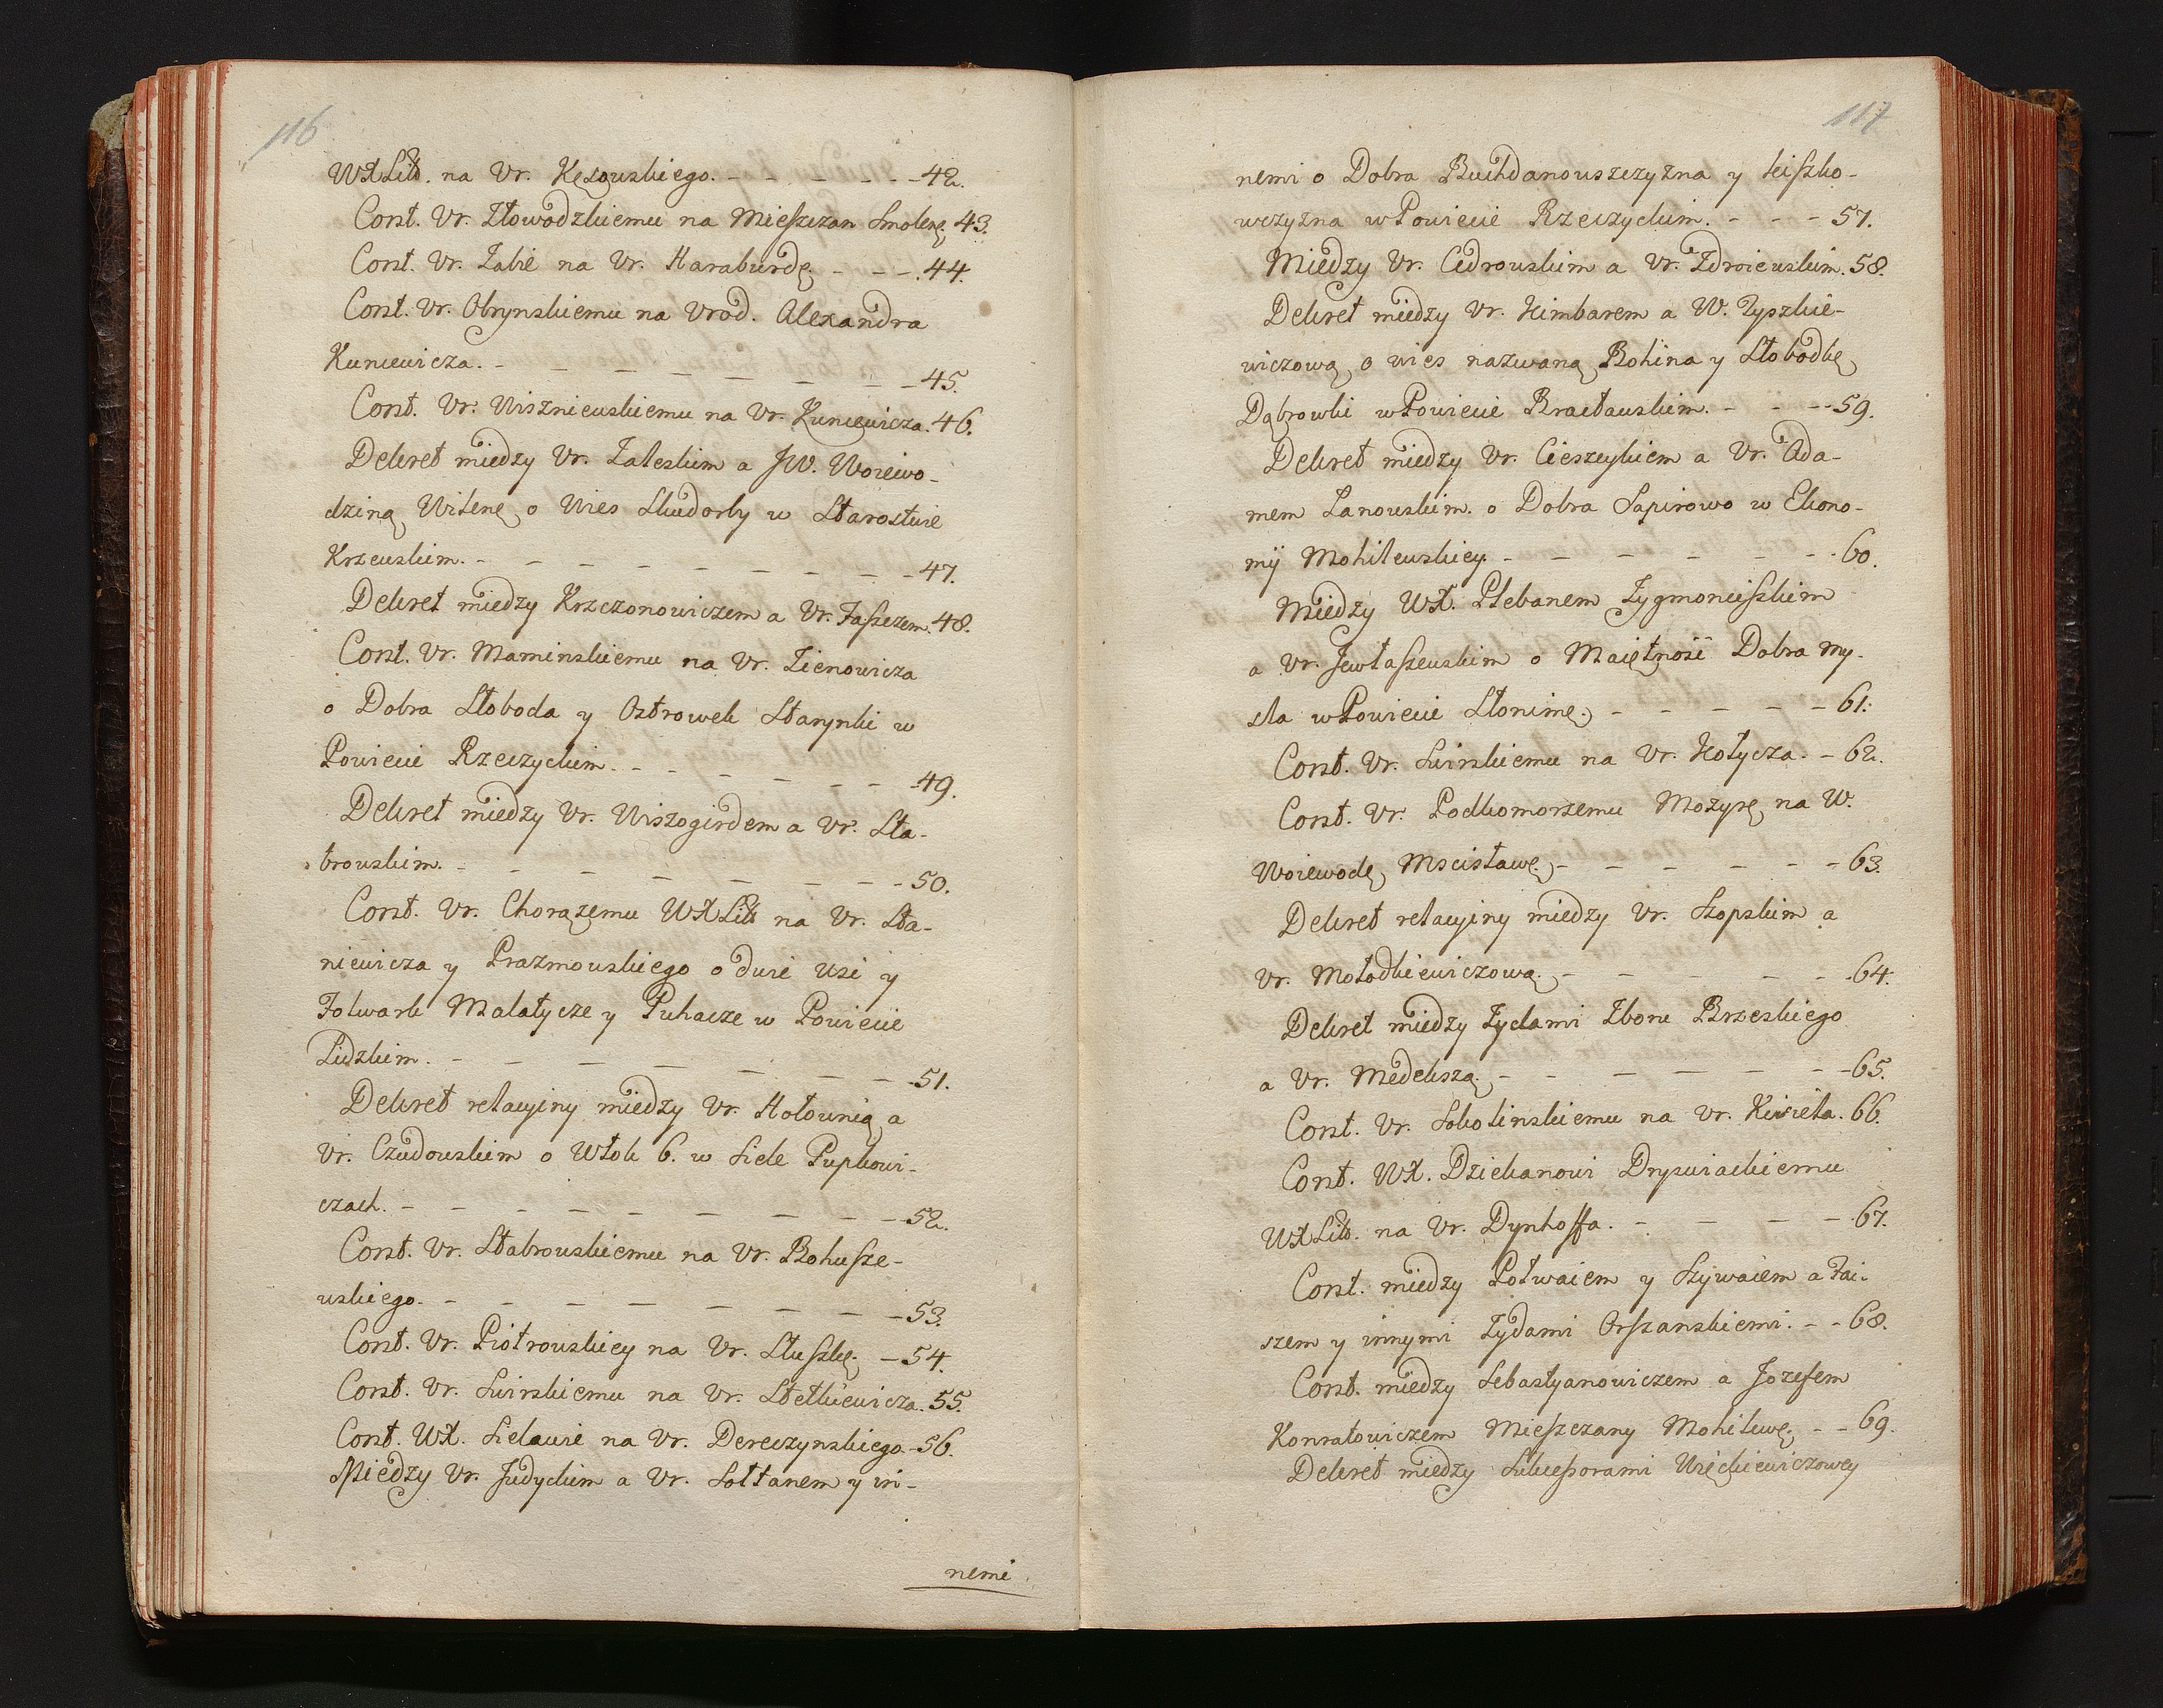 116
WXLitt. na Vr. Kęsowskiego. - - - - - - 42.
Const. Vr. Złowodzkiemu na Mieszczan Smoleń. 43.
Const. Vr. Zabie na Vr. Haraburdę. - - - 44.
Const. Vr. Obrynskiemu na Vrod. Alexandra
Kuncewicza. - - - - - - - - 45.
Const. Vr. Wiszniewskiemu na Vr. Kuncewicza. 46.
Dekret między Vr. Zaleskim a JW. Woiewo-
dziną Wileńę o Wies Skudorby w Starostwie
Krzewskim. - - - - - - - - 47.
Dekret między Krzczonowiczem a Vr. Faszczem. 48.
Const. Vr. Maminskiemu na Vr. Zienowicza
o Dobra Słoboda y Ostrowek Starynki w
Powiecie Rzeczyckim. - - - - - - - 49.
Dekret między Vr. Wiszogirdem a Vr. Sta-
browskim. - - - - - - - - 50.
Const. Vr. Chorązemu WXLitt na Vr. Sta-
niewicza y Prazmowskiego o dwie Wsi y
Folwark Malatycze y Puhacze w Powiecie
Lidzkim. - - - - - - - 51.
Dekret relacyiny między Vr. Hołownią a
Vr. Czudowskim o Włok 6. w Siele Pupkowi-
czach. - - - - - - - - - 52.
Const. Vr. Stabrowskiemu na Vr. Bohusze-
wskiego. - - - - - - - - 53.
Const. Vr. Piotrowskiey na Vr. Słuszkę. - 54.
Const. Vr. Swirskiemu na Vr. Stetkiewicza. 55.
Const. WX. Sielawie na Vr. Dereczynskiego. - 56.
Między Vr. Judyckim a Vr. Sołtanem y in-
nemi
117
nemi o Dobra Buchdanowszczyzna y Kiszko-
wczyzna w Powiecie Rzeczyckim. - - - 57.
Między Vr. Cedrowskim a Vr. Zdroiewskim. 58.
Dekret między Vr. Kimbarem a W. Tyszkie-
wiczową o wies nazwaną Bohina y Słobodkę
Dąbrowki w Powiecie Bracławskim. - - - 59.
Dekret między Vr. Cieszeykiem a Vr. Ada-
mem Lanowskim. o Dobra Sapirowo w Ekono-
mij Mohilewskiey. - - - - - - 60.
Między WX. Plebanem Zygmonciszkim
a Vr. Jewłaszewskim o Maiętnosc Dobra My-
sla w Powiecie Słonimę. - - - - - 61.
Const. Vr. Swirskiemu na Vr. Kotycza. - 62.
Const. Vr. Podkomorzemu Mozyrę na W.
Woiewodę Mscisławę. - - - - - - 63.
Dekret relacyiny między Vr. Szopskim a
Vr. Mołodkiewiczową. - - - - - - 64.
Dekret między Zydami Zboru Brzeskiego
a Vr. Medekszą. - - - - - - - 65.
Const. Vr. Sokolinskiemu na Vr. Kisiela. 66.
Const. WX. Dziekanowi Drywiackiemu
WXLitt. na Vr. Dynhoffa. - - - - 67.
Const. między Połwaiem y Szywaiem a Fai-
szem y innymi Zydami Orszanskiemi. - - 68.
Const. między Sebastyanowiczem a Jozefem
Konratowiczem Mieszczany Mohilewę. - - 69.
Dekret między Sukcessorami Więckiewiczowey